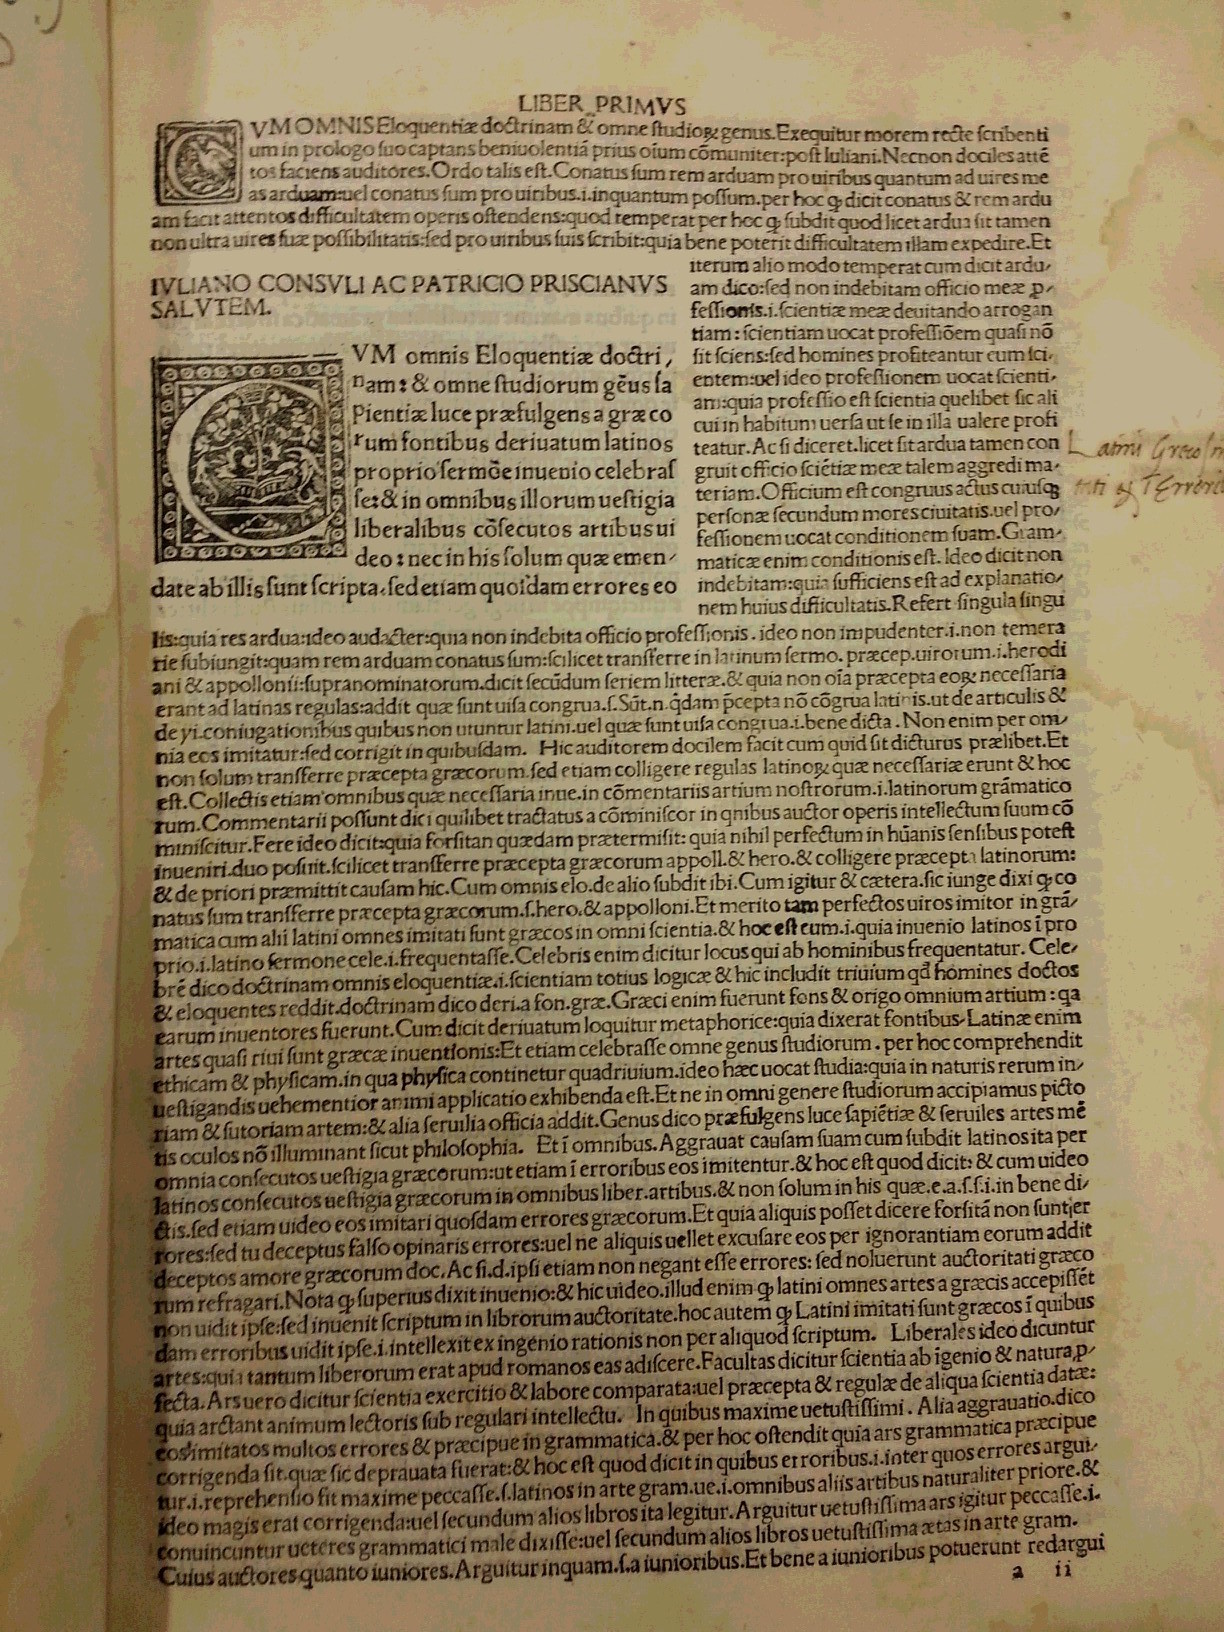 LIBER PRIMVS
CVM OMNIS Eloquentiæ doctrinam & omne studioꝝ genus. Exequitur morem recte scribenti
um in prologo suo captans beniuolentiā prius oīum cōmuniter: post Iuliani. Necnon dociles attē
tos faciens auditores. Ordo talis est. Conatus sum rem arduam pro uiribus quantum ad uires me
as arduam: uel conatus sum pro uiribus. i. inquantum possum. per hoc ꝙ dicit conatus & rem ardu
am facit attentos difficultatem operis ostendens: quod temperat per hoc ꝙ subdit quod licet ardua sit tamen
non ultra uires suæ possibilitatis: sed pro uiribus suis scribit: quia bene poterit difficultatem illam expedire. Et
IVLIANO CONSVLI AC PATRICIO PRISCIANVS
SALVTEM.
CVM omnis Eloquentiæ doctri,
nam: & omne studiorum gēus sa
pientiæ luce præfulgens a græco
rum fontibus deriuatum latinos
proprio sermōe inuenio celebras
se: & in omnibus illorum uestigia
liberalibus cōsecutos artibus ui
deo: nec in his solum quæ emen/
date ab illis sunt scripta, sed etiam quosdam errores eo
iterum alio modo temperat cum dicit ardu/
am dico: sed non indebitam officio meæ ꝓ/
fessionis. i. scientiæ meæ deuitando arrogan
tiam: scientiam uocat professiōem quasi nō
sit sciens: sed homines profiteantur eum sci/
entem: uel ideo professionem uocat scienti/
am: quia professio est scientia quelibet sic ali
cui in habitum uersa ut se in illa ualere profi
teatur. Ac si diceret. licet sit ardua tamen con
gruit officio sciētiæ meæ talem aggredi ma/
teriam. Officium est congruus actus cuiusqꝫ
personæ secundum mores ciuitatis. uel pro/
fessionem uocat conditionem suam. Gram/
maticæ enim conditionis est. Ideo dicit non
indebitam: quia sufficiens est ad explanatio/
nem huius difficultatis. Refert singula singu
Latini Greco
lis: quia res ardua: ideo audacter: quia non indebita officio professionis. ideo non impudenter. i. non temera
rie subiungit: quam rem arduam conatus sum: scilicet transferre in latinum sermo. præcep. uirorum. i. herodi
ani & appollonii: supranominatorum. dicit secūdum seriem litteræ. & quia non oīa præcepta eoꝝ necessaria
erant ad latinas regulas: addit quæ sunt uisa congrua. s. Sūt. n. q̄dam p̄cepta nō cōgrua latinis. ut de articulis &
de yi. coniugationibus quibus non utuntur latini. uel quæ sunt uisa congrua. i. bene dicta. Non enim per om/
nia eos imitatur: sed corrigit in quibusdam. Hic auditorem docilem facit cum quid sit dicturus prælibet. Et
non solum transferre præcepta græcorum. sed etiam colligere regulas latinoꝝ quæ necessariæ erunt & hoc
est. Collectis etiam omnibus quæ necessaria inue. in cōmentariis artium nostrorum. i. latinorum grāmatico
rum. Commentarii possunt dici quilibet tractatus a cōminiscor in quibus auctor operis intellectum suum cō
miniscitur. Fere ideo dicit: quia forsitan quædam prætermisit: quia nihil perfectum in hūanis sensibus potest
inueniri. duo posuit. scilicet transferre præcepta græcorum appoll. & hero. & colligere præcepta latinorum:
& de priori præmittit causam hic. Cum omnis elo. de alio subdit ibi. Cum igitur & cætera. sic iunge dixi ꝙ co
natus sum transferre præcepta græcorum. s. hero. & appolloni. Et merito tam perfectos uiros imitor in grā/
matica cum alii latini omnes imitati sunt græcos in omni scientia. & hoc est cum. i. quia inuenio latinos ī pro
prio. i. latino sermone cele. i. frequentasse. Celebris enim dicitur locus qui ab hominibus frequentatur. Cele/
brē dico doctrinam omnis eloquentiæ. i. scientiam totius logicæ & hic includit triuium qđ homines doctos
& eloquentes reddit. doctrinam dico deri. a fon. græ. Græci enim fuerunt fons & origo omnium artium: qa
earum inuentores fuerunt. Cum dicit deriuatum loquitur metaphorice: quia dixerat fontibus. Latinæ enim
artes quasi riui sunt græcæ inuentionis: Et etiam celebrasse omne genus studiorum. per hoc comprehendit
ethicam & physicam. in qua physica continetur quadriuium. ideo hæc uocat studia: quia in naturis rerum in/
uestigandis uehementior animi applicatio exhibenda est. Et ne in omni genere studiorum accipiamus picto
riam & sutoriam artem: & alia seruilia officia addit. Genus dico præfulgens luce sapiētiæ & seruiles artes mē
tis oculos nō illuminant sicut philosophia. Et ī omnibus. Aggrauat causam suam cum subdit latinos ita per
omnia consecutos uestigia græcorum: ut etiam ī erroribus eos imitentur. & hoc est quod dicit: & cum uideo
latinos consecutos uestigia græcorum in omnibus liber. artibus. & non solum in his quæ. e. a. s. s. i. in bene di/
ctis. sed etiam uideo eos imitari quosdam errores græcorum. Et quia aliquis posset dicere forsitā non sunt er
rores: sed tu deceptus falso opinaris errores: uel ne aliquis uellet excusare eos per ignorantiam eorum addit
deceptos amore græcorum doc. Ac si. d. ipsi etiam non negant esse errores: sed noluerunt auctoritati græco
rum refragari. Nota ꝙ superius dixit inuenio: & hic uideo. illud enim ꝙ latini omnes artes a græcis accepissēt
non uidit ipse: sed inuenit scriptum in librorum auctoritate. hoc autem ꝙ Latini imitati sunt græcos ī quibus
dam erroribus uidit ipse. i. intellexit ex ingenio rationis non per aliquod scriptum. Liberales ideo dicuntur
artes: quia tantum liberorum erat apud romanos eas adiscere. Facultas dicitur scientia ab īgenio & natura ꝓ/
fecta. Ars uero dicitur scientia exercitio & labore comparata: uel præcepta & regulæ de aliqua scientia datæ:
quia arctant animum lectoris sub regulari intellectu. In quibus maxime uetustissimi. Alia aggrauatio. dico
eos imitatos multos errores & præcipue in grammatica. & per hoc ostendit quia ars grammatica præcipue
corrigenda sit. quæ sic deprauata fuerat: & hoc est quod dicit in quibus erroribus. i. inter quos errores argui/
tur. i. reprehensio fit maxime peccasse. s. latinos in arte gram. ue. i. omnibus aliis artibus naturaliter priore. &
ideo magis erat corrigenda: uel secundum alios libros ita legitur. Arguitur uetustissima ars igitur peccasse. i.
conuincuntur ueteres grammatici male dixisse: uel secundum alios libros uetustissima ætas in arte gram.
Cuius auctores quanto iuniores. Arguitur inquam. s. a iunioribus. Et bene a iunioribus potuerunt redargui
a ii